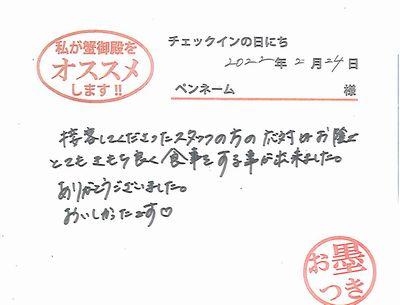 私が蟹御殿を
オススメ
します!!
チェックインの日にち
2022年2月24日
ペンネーム 様
接客してくださったスタッフの方の応対のお陰で
とてもきもち良く食事をする事が出来ました。
ありがとうございました。
おいしかったです♡
お墨
つき